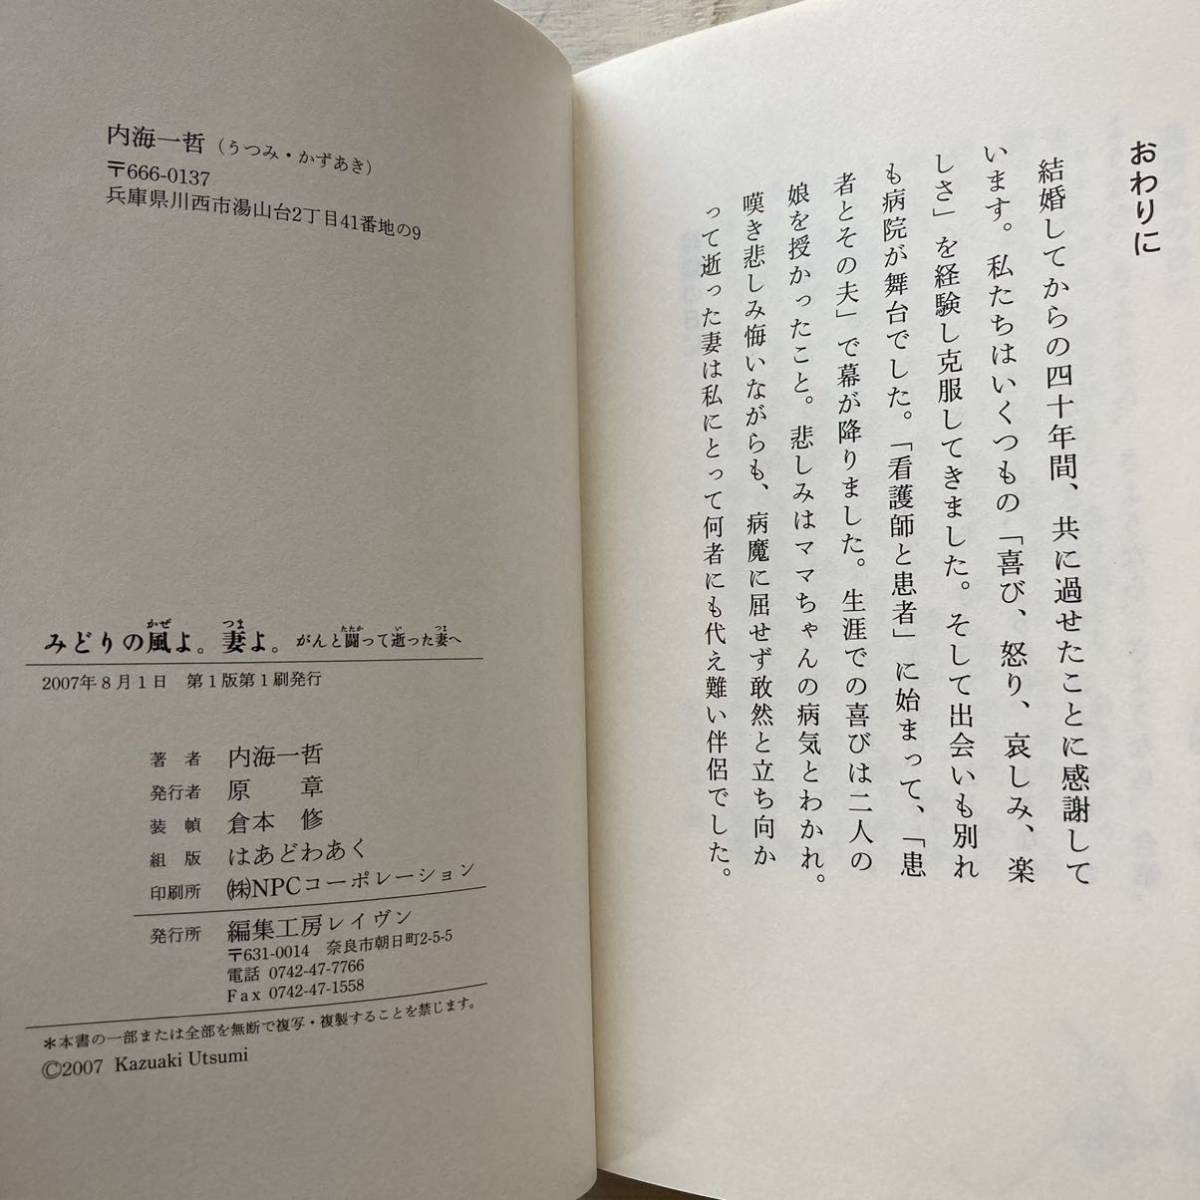 おわりに
結婚してからの四十年間、共に過せたことに感謝して
います。私たちはいくつもの「喜び、怒り、哀しみ、楽
しさ」を経験し克服してきました。そして出会いも別れ
も病院が舞台でした。「看護師と患者」に始まって、「患
者とその夫」で幕が降りました。生涯での喜びは二人の
娘を授かったこと。悲しみはママちゃんの病気とわかれ。
嘆き悲しみ悔いながらも、病魔に屈せず敢然と立ち向か
って逝った妻は私にとって何者にも代え難い伴侶でした。
内海一哲（うつみ・かずあき）
〒666-0137
兵庫県川西市湯山台2丁目41番地の9
みどりの風よ。妻よ。がんと闘って逝った妻へ
2007年8月1日 第1版第1刷発行
著者 内海一哲
発行者 原 章
装幀 倉本 修
組版 はあどわあく
印刷所 ㈱NPCコーポレーション
発行所 編集工房レイヴン
〒631-0014 奈良市朝日町2-5-5
電話 0742-47-7766
Fax 0742-47-1558
＊本書の一部または全部を無断で複写・複製することを禁じます。
©2007 Kazuaki Utsumi